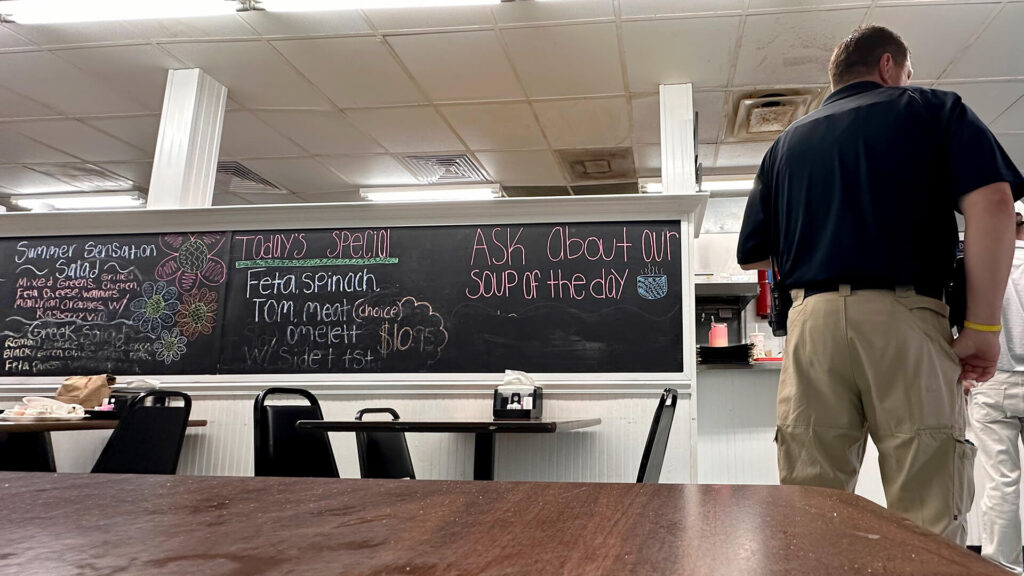 Summer Sensation
~ Salad ~
Mixed Greens, Grille Chicken
Feta Cheese, walnuts
Mandrian Oranges w/
Rasberry Vin
Greek Salad
Black/Green
Feta
Today's Special
Feta, spinach
Tom, meat (choice)
omelett $10.95
w/ side + tst
ASK About our
soup of the day